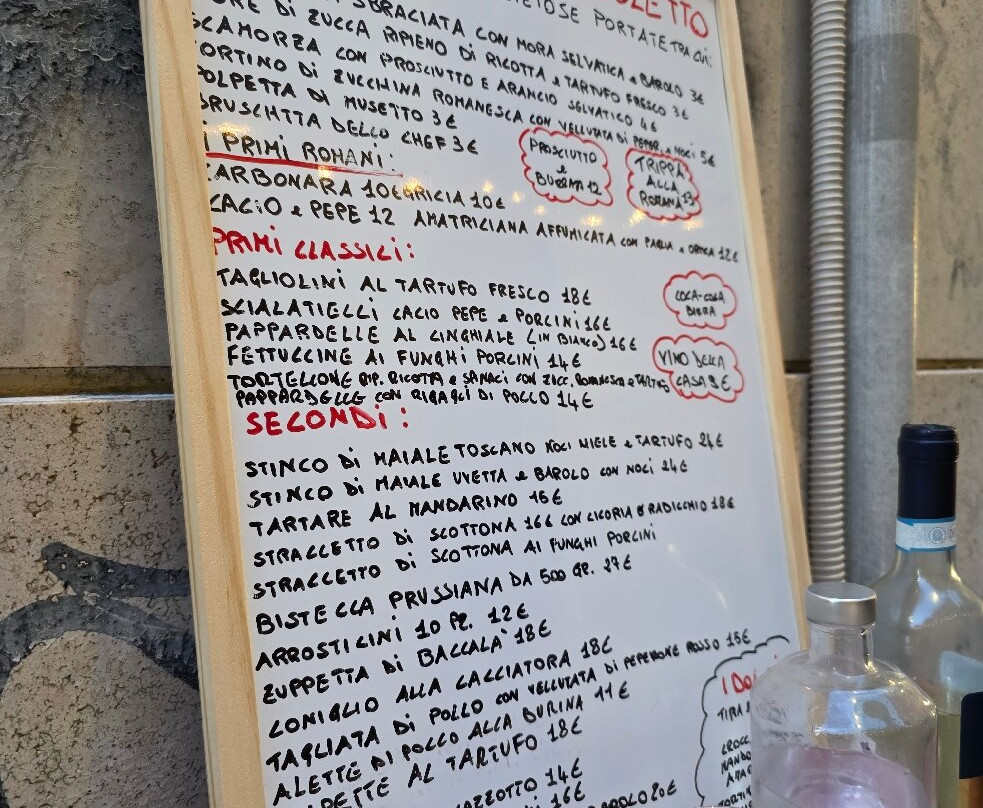 LETTO
PORTATE TRA CUI:
SBRACIATA CON MORA SELVATICA e BAROLO 3€
DI ZUCCA RIPIENO DI RICOTTA e TARTUFO FRESCO 3€
SCAMORZA CON PROSCIUTTO E ARANCIO SELVATICO 4€
TORTINO DI ZUCCHINA ROMANESCA CON VELLUTATA DI PEPER. e NOCI 5€
POLPETTA DI MUSETTO 3€
BRUSCHTTA DELLO CHEF 3€
PROSCIUTTO
e
BURRATA 12
TRIPPA
ALLA
ROMANA 13
I PRIMI ROMANI:
CARBONARA 10€ GRICIA 10€
CACIO e PEPE 12 AMATRICIANA AFFUMICATA CON PAGLIA e ORTICA 12€
PRIMI CLASSICI:
TAGLIOLINI AL TARTUFO FRESCO 18€
SCIALATIELLI CACIO PEPE e PORCINI 16€
PAPPARDELLE AL CINGHIALE (IN BIANCO) 16€
FETTUCCINE AI FUNGHI PORCINI 14€
TORTELLONE RIP. RICOTTA e SPINACI CON ZUCC. ROMANESCA e TARTUFO
PAPPARDELLE CON RIGAGLI DI POLLO 14€
COCA-COLA
BIRRA
VINO DELLA
CASA 9€
SECONDI:
STINCO DI MAIALE TOSCANO NOCI MIELE e TARTUFO 24€
STINCO DI MAIALE UVETTA e BAROLO CON NOCI 24€
TARTARE AL MANDARINO 15€
STRACCETTO DI SCOTTONA 16€ CON CICORIA O RADICCHIO 18€
STRACCETTO DI SCOTTONA AI FUNGHI PORCINI
BISTECCA PRUSSIANA DA 500 GR. 27€
ARROSTICINI 10 PZ. 12€
ZUPPETTA DI BACCALA' 18€
CONIGLIO ALLA CACCIATORA 18€
TAGLIATA DI POLLO CON VELLUTATA DI PEPERONE ROSSO 15€
ALETTE DI POLLO ALLA BURINA 11€
AL TARTUFO 18€
14€
16€
BAROLO 20€
I
TIRA
CROCC
MANDO
ARAN
TORTIN